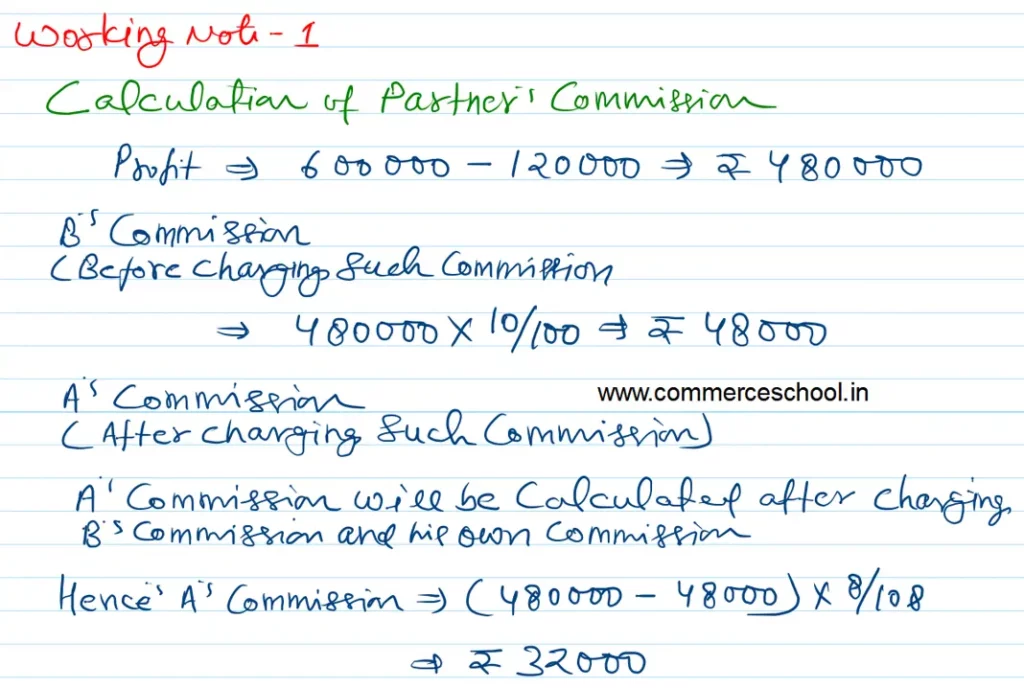 Working Note - 1
Calculation of Partner's Commission
Profit ⇒ 600000 - 120000 ⇒ ₹ 480000
B's Commission
(Before charging Such Commission
⇒ 480000 X 10/100 ⇒ ₹ 48000
A's Commission
www.commerceschool.in
(After charging Such Commission)
A' Commission will be Calculated after charging
B's Commission and his own Commission
Hence' A's Commission ⇒ (480000 - 48000) X 8/108
⇒ ₹ 32000